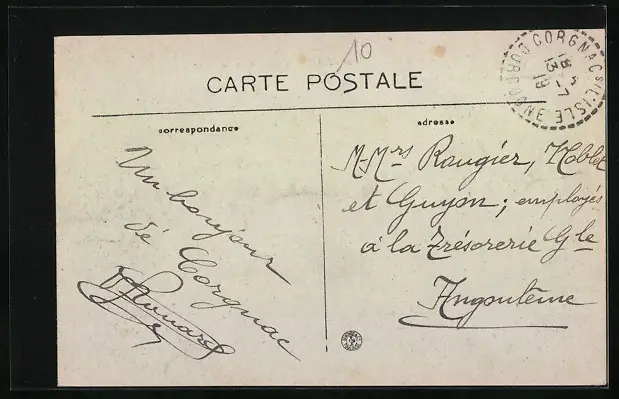 10
CARTE POSTALE
correspondance
adresse
CORGNAC s/L'ISLE
DORDOGNE
18 -7
13
19
Un bonjour
de Corgnac
M-Mrs Rougier, Noblet
et Guyon; employés
à la Trésorerie Gle
Angoulême